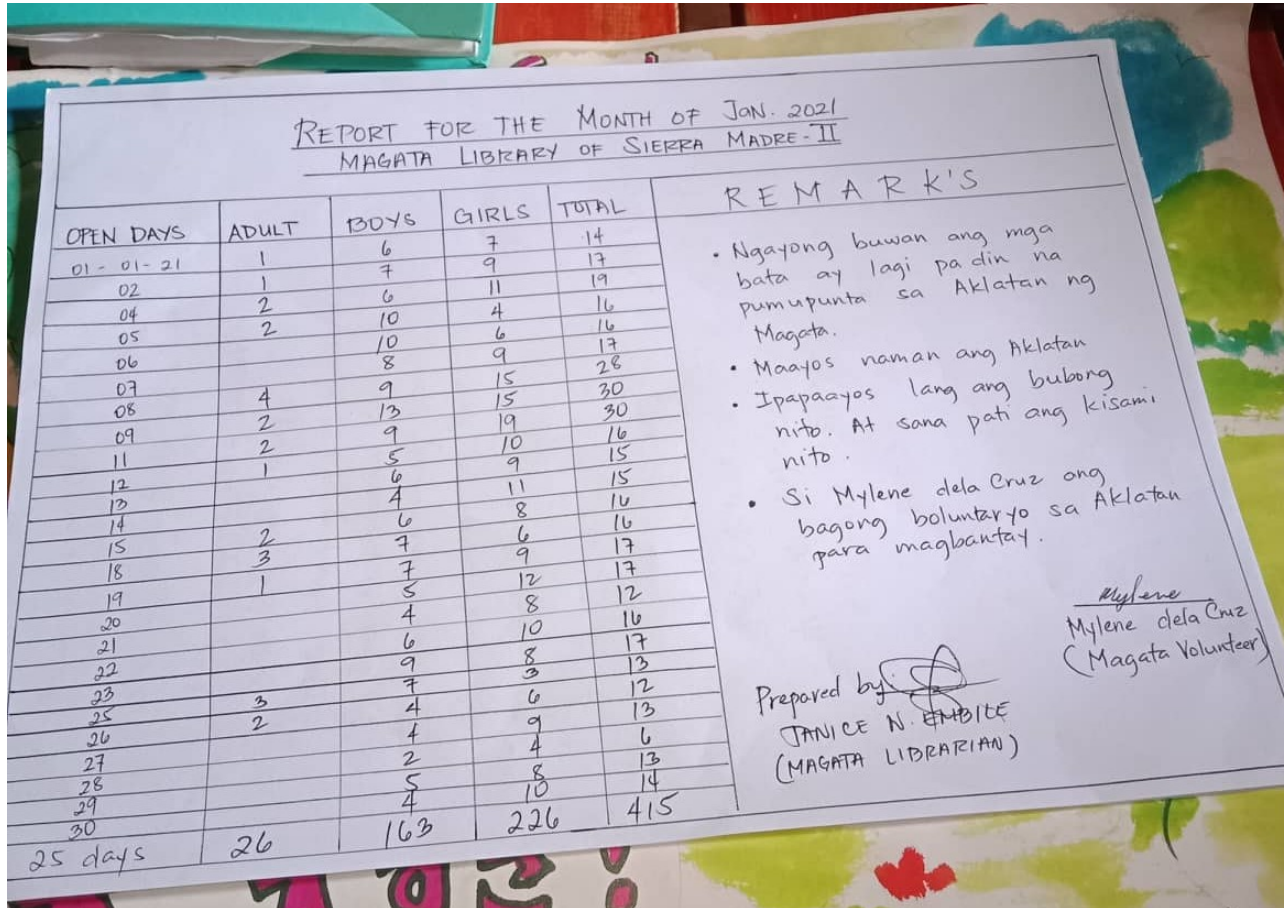 REPORT FOR THE MONTH OF JAN. 2021
MAGATA LIBRARY OF SIERRA MADRE-II
OPEN DAYS ADULT BOYS GIRLS TOTAL
01-01-21 1 6 7 14
02 1 7 9 17
04 2 6 11 19
05 2 10 4 16
06 10 6 16
07 8 9 17
08 4 9 15 28
09 2 13 15 30
11 2 9 19 30
12 1 5 10 16
13 6 9 15
14 4 11 15
15 2 6 8 16
18 3 7 6 16
19 1 7 9 17
20 5 12 17
21 4 8 12
22 6 10 16
23 9 8 17
25 3 7 3 13
26 2 4 6 12
27 4 9 13
28 2 4 6
29 5 8 13
30 4 10 14
25 days 26 163 226 415
REMARK'S
• Ngayong buwan ang mga
bata ay lagi pa din na
pumupunta sa Aklatan ng
Magata.
• Maayos naman ang Aklatan
• Ipapaayos lang ang bubong
nito. At sana pati ang kisami
nito.
• Si Mylene dela Cruz ang
bagong boluntaryo sa Aklatan
para magbantay.
Mylene
Mylene dela Cruz
(Magata Volunteer)
Prepared by:
JANICE N. EMBILE
(MAGATA LIBRARIAN)